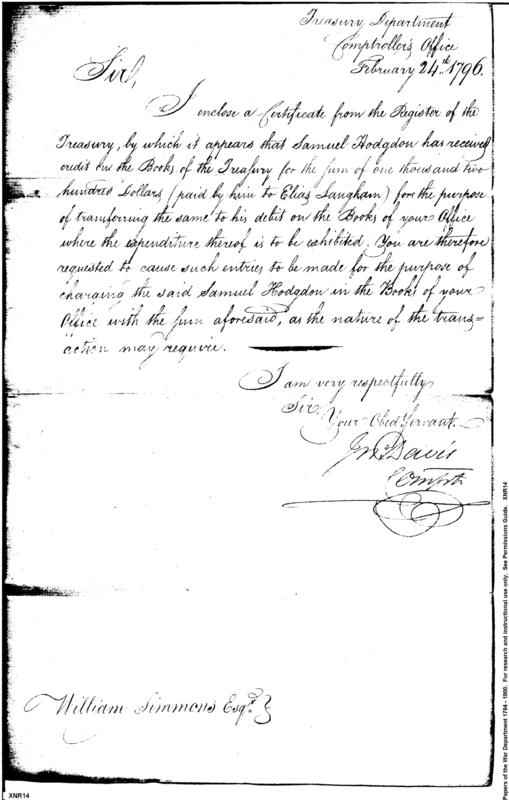 Treasury Department
Comptroller's Office
February 24th 1796.
Sir,
I enclose a Certificate from the Register of the
Treasury, by which it appears that Samuel Hodgdon has received
credit on the Books of the Treasury for the sum of one thousand two
hundred Dollars (paid by him to Elias Langham) for the purpose
of transferring the same to his debit on the Books of your Office
where the expenditure thereof is to be exhibited. You are therefore
requested to cause such entries to be made for the purpose of
charging the said Samuel Hodgdon in the Books of your
Office with the sum aforesaid, as the nature of the trans=
action may require.
I am very respectfully
Sir,
Your Obed Servant.
Jno Davis
Compt
William Simmons Esqr.
XNR14
Papers of the War Department 1784 - 1800. For research and instructional use only. See Permissions Guide. XNR14